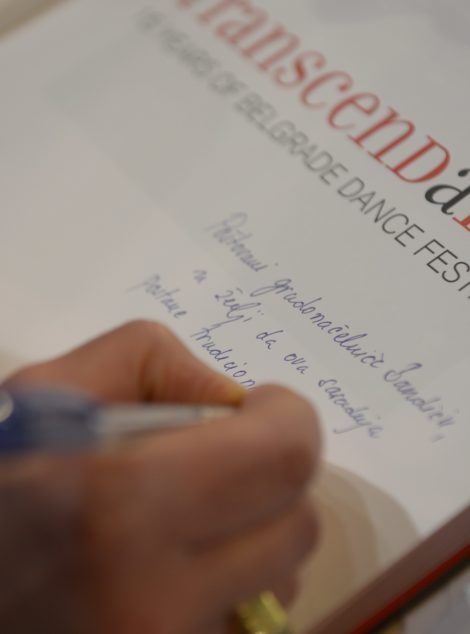 TranscenDa
15 YEARS OF BELGRADE DANCE FEST
Poštovani gradonačelniče Bandiću,
u želji da ova saradnja
postane tradicion